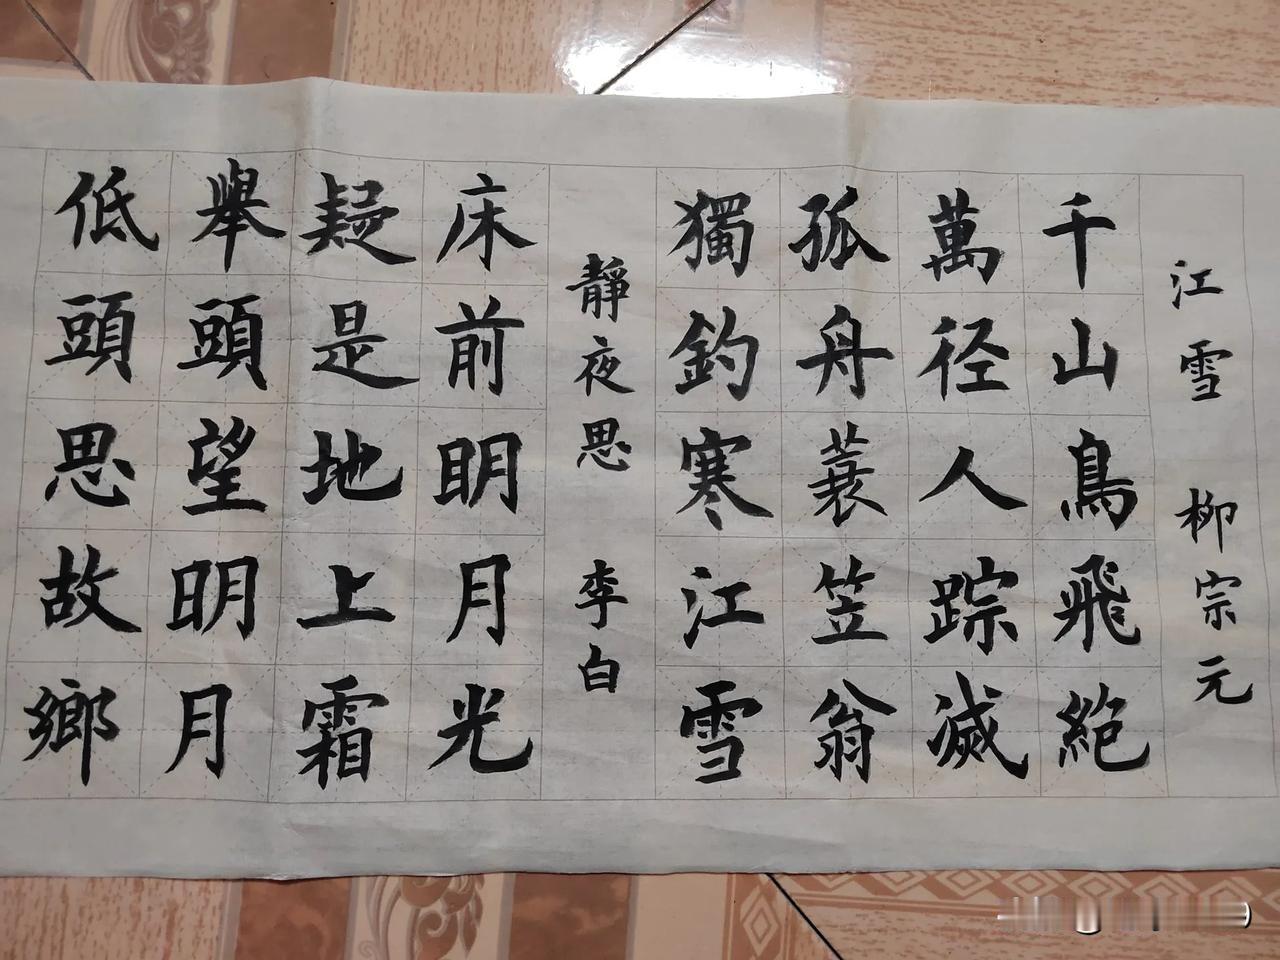 江雪 柳宗元
千山鳥飛絕
萬径人踪滅
孤舟蓑笠翁
獨釣寒江雪
靜夜思 李白
床前明月光
疑是地上霜
舉頭望明月
低頭思故鄉